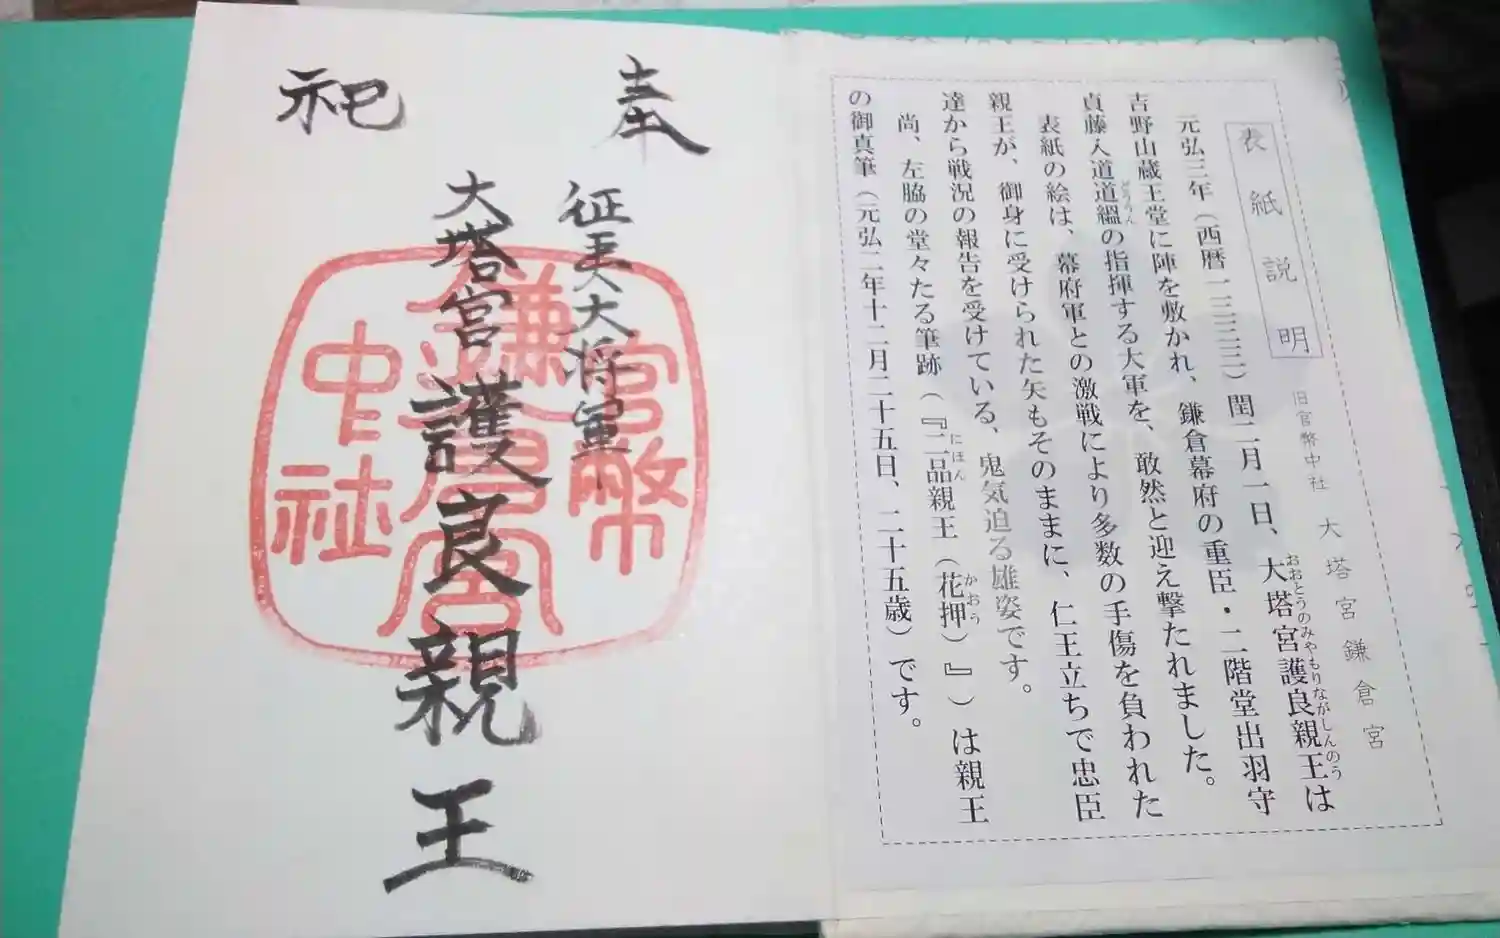 表紙説明
旧官幣中社 大塔宮鎌倉宮
元弘三年（西暦一三三三）閏二月一日、大塔宮護良親王は
おおとうのみやもりながしんのう
吉野山蔵王堂に陣を敷かれ、鎌倉幕府の重臣・二階堂出羽守
貞藤入道道蘊の指揮する大軍を、敢然と迎え撃たれました。
どううん
表紙の絵は、幕府軍との激戦により多数の手傷を負われた
親王が、御身に受けられた矢もそのままに、仁王立ちで忠臣
達から戦況の報告を受けている、鬼気迫る雄姿です。
尚、左脇の堂々たる筆跡（『二品親王（花押）』）は親王
にほん
かおう
の御真筆（元弘二年十二月二十五日、二十五歳）です。
奉
祀
征夷大将軍
大塔宮
護良親王
官幣
鎌倉宮
中社